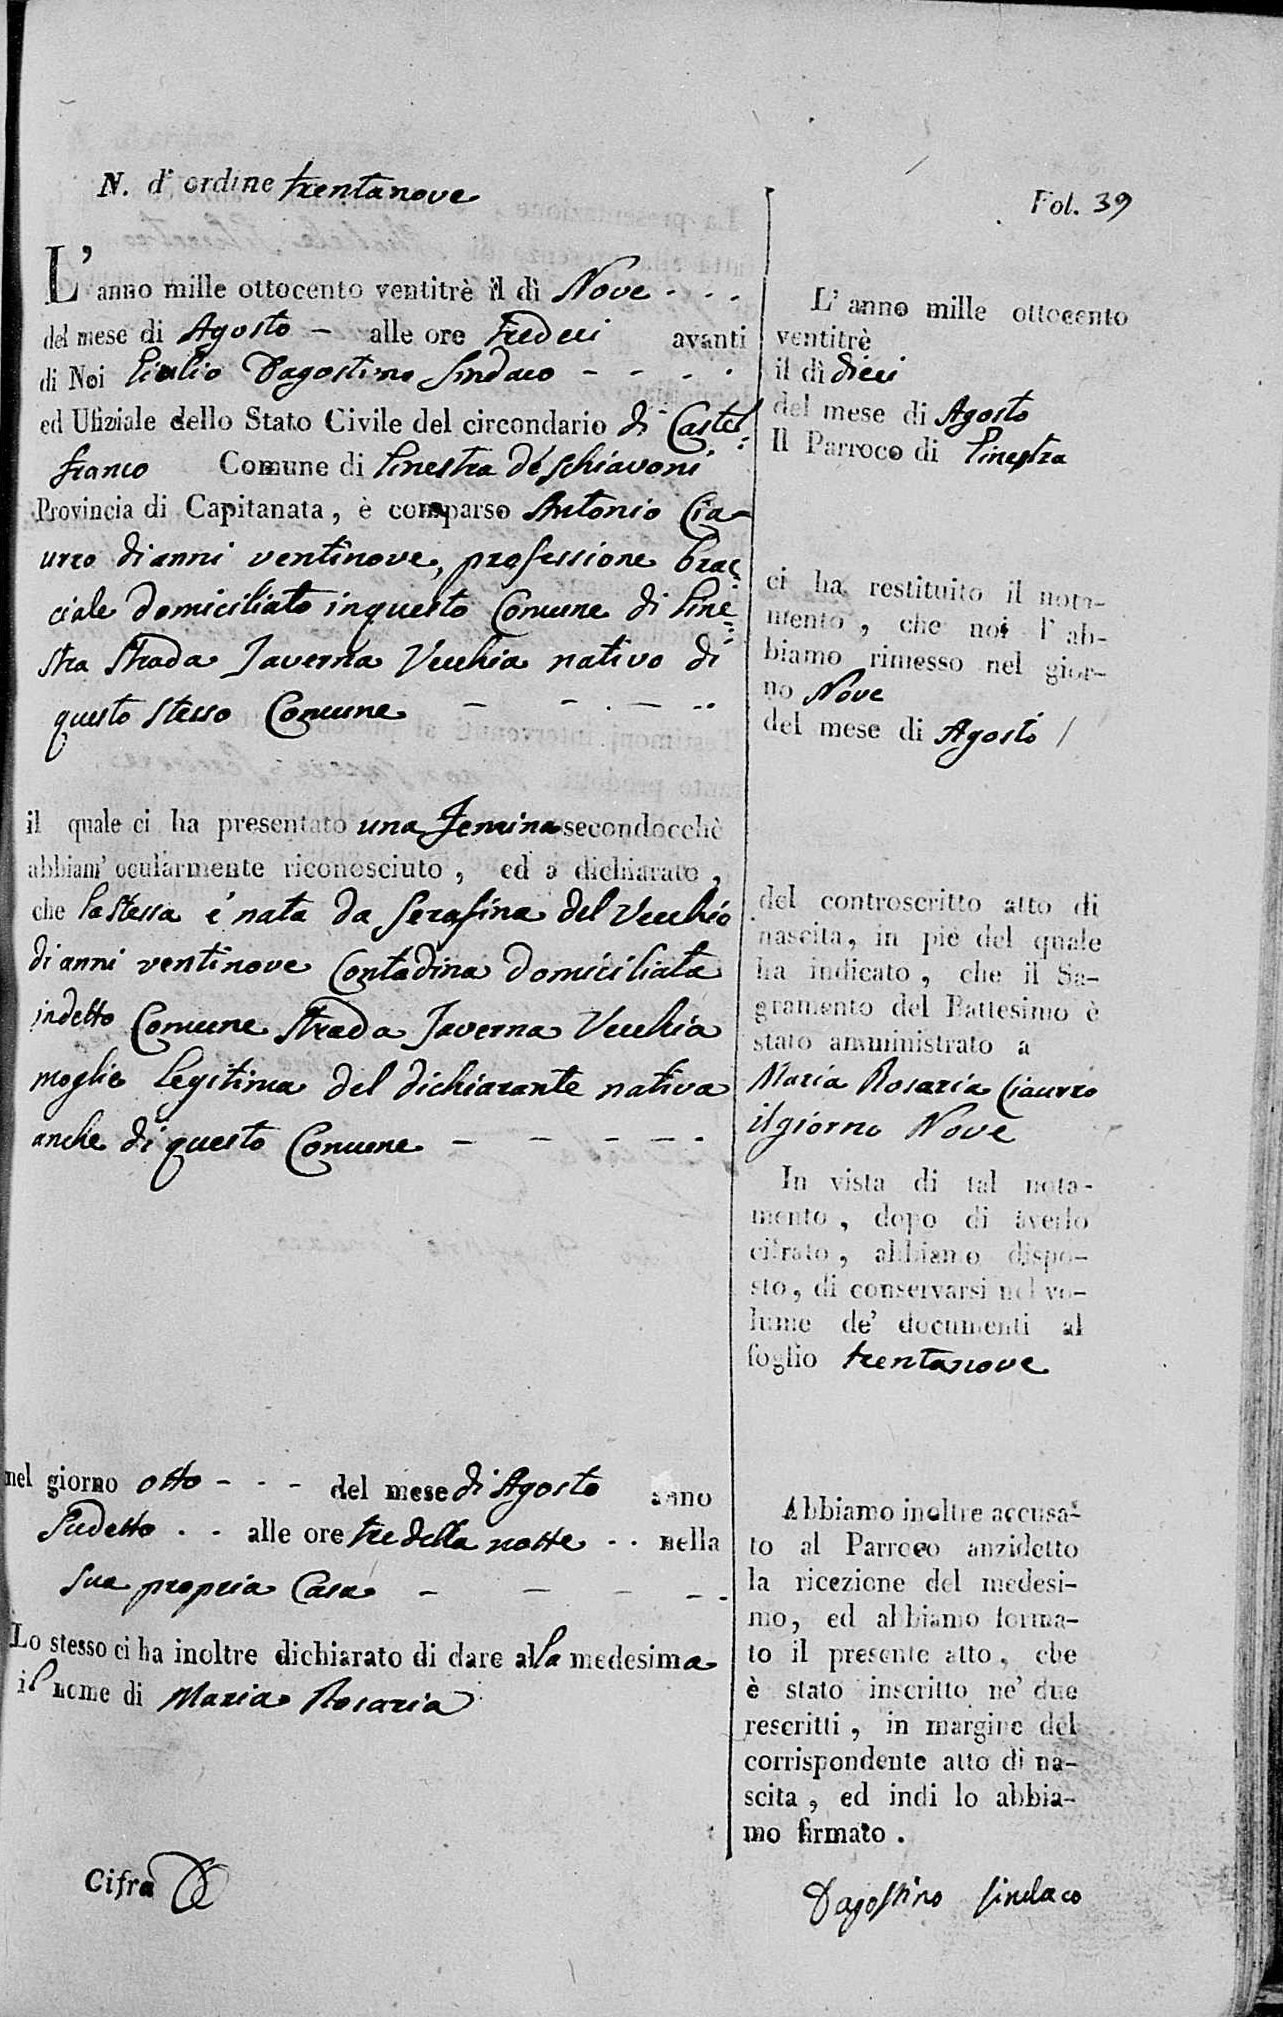 N. d' ordine trentanove
Fol. 39
L' anno mille ottocento ventitrè il dì Nove - - -
del mese di Agosto - alle ore tredeci avanti
di Noi Giulio Dagostino Sindaco - - - -
ed Ufiziale dello Stato Civile del circondario di Castel=
franco Comune di Ginestra de' Schiavoni
Provincia di Capitanata, è comparso Antonio Cia-
urro di anni ventinove, professione brac=
ciale domiciliato in questo Comune di Gine=
stra Strada Taverna Vecchia nativo di
questo stesso Comune - - - -
il quale ci ha presentato una Femina secondocchè
abbiam' ocularmente riconosciuto, ed a dichiarato,
che la stessa è nata da Serafina del Vecchio
di anni ventinove Contadina domiciliata
in detto Comune Strada Taverna Vecchia
moglie legitima del dichiarante nativa
anche di questo Comune - - - - -
nel giorno otto - - - del mese di Agosto anno
Sudetto - - alle ore tre della notte - - nella
Sua propria Casa - - - - -
Lo stesso ci ha inoltre dichiarato di dare alla medesima
il nome di Maria Rosaria
Cifra
L' anno mille ottocento
ventitrè
il dì dieci
del mese di Agosto
Il Parroco di Ginestra
ci ha restituito il nota-
mento, che noi l' ab-
biamo rimesso nel gior-
no Nove
del mese di Agosto /
del controscritto atto di
nascita, in piè del quale
ha indicato, che il Sa-
gramento del Battesimo è
stato amministrato a
Maria Rosaria Ciaurro
il giorno Nove
In vista di tal nota-
mento, dopo di averlo
cifrato, abbiamo dispo-
sto, di conservarsi nel vo-
lume de' documenti al
foglio trentanove
Abbiamo inoltre accusa-
to al Parroco anzidetto
la ricezione del medesi-
mo, ed abbiamo forma-
to il presente atto, che
è stato inscritto ne' due
rescritti, in margine del
corrispondente atto di na-
scita, ed indi lo abbia-
mo firmato.
Dagostino Sindaco